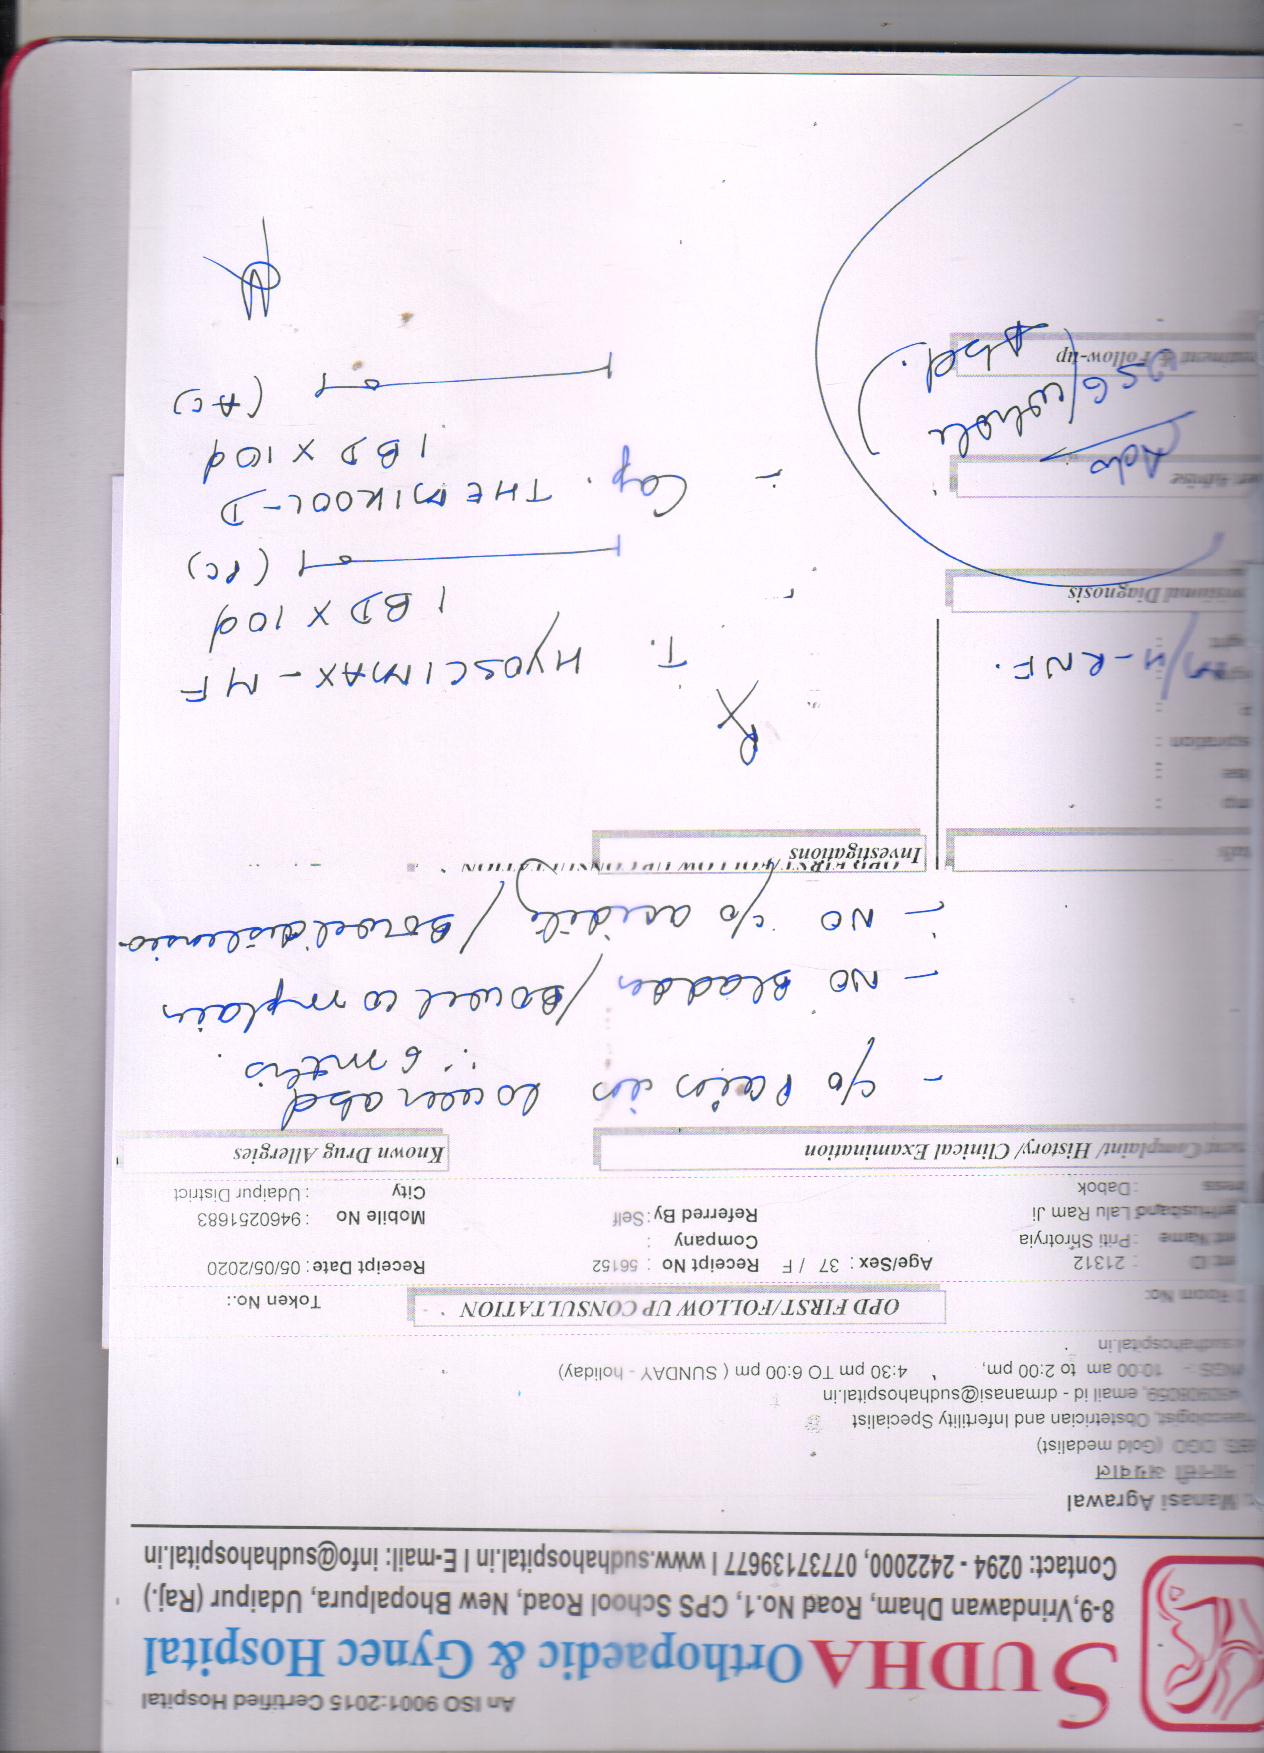 An ISO 9001:2015 Certified Hospital
SUDHA Orthopaedic & Gynec Hospital
8-9,Vrindawan Dham, Road No.1, CPS School Road, New Bhopalpura, Udaipur (Raj.)
Contact: 0294 - 2422000, 07737139677 I www.sudhahospital.in I E-mail: info@sudhahospital.in
Manasi Agrawal
अग्रवाल
DGO (Gold medalist)
Obstetrician and Infertility Specialist
email id - drmanasi@sudhahospital.in
10:00 am to 2:00 pm, 4:30 pm TO 6:00 pm ( SUNDAY - holiday)
sudhahospital.in
Room No:
OPD FIRST/FOLLOW UP CONSULTATION
Token No.:
ID : 21312
Age/Sex : 37 / F
Receipt No : 56152
Receipt Date : 05/05/2020
Name : Priti Shrotryia
Company :
Husband Lalu Ram Ji
Referred By : Self
Mobile No : 9460251683
: Dabok
City : Udaipur District
Complaint/ History/ Clinical Examination
Known Drug Allergies
- c/o Pain in lower abd
∵ 6 mths.
- NO Bladder/Bowel complain
- NO c/o acidity/Bowel distension
OPD FIRST/FOLLOW UP CONSULTATION
Investigations
Rx
M/H - RNF.
T. HYOSCIMAX - MF
1 BD X 10d
(PC)
Diagnosis
- Cap. THEMIKOOL - D
1 BD X 10d
(AC)
Advise
Adv
USG/whole
Abd.
& Follow-up